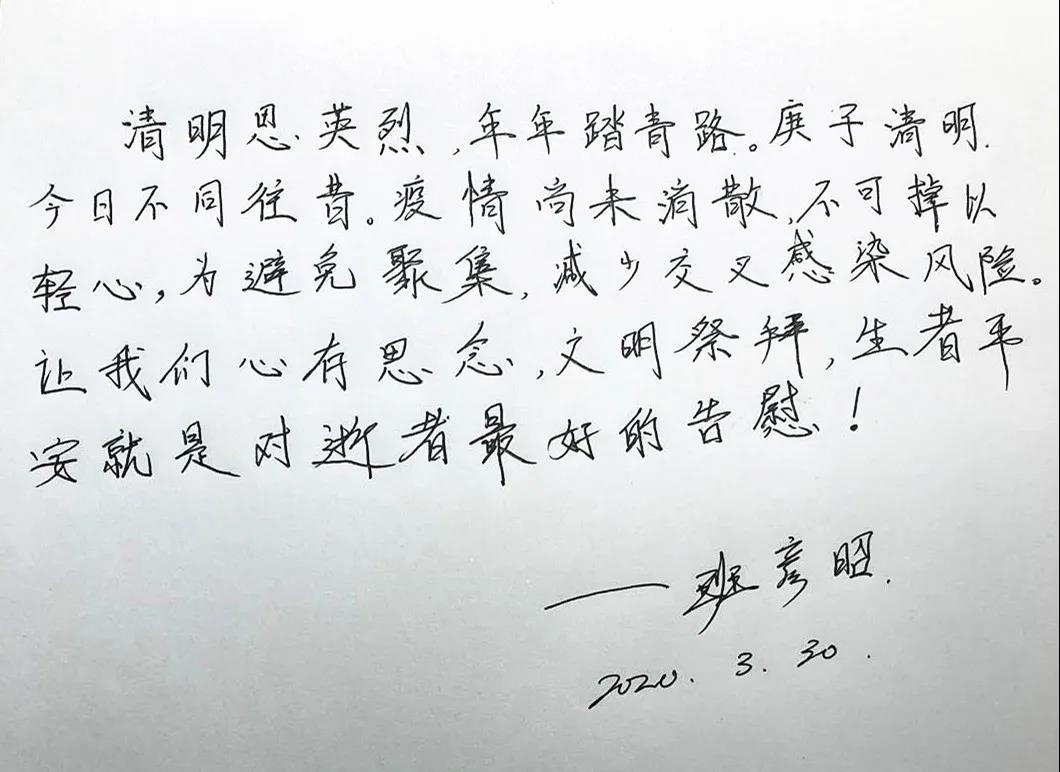 清明思英烈,年年踏青路。庚子清明.
今日不同往昔。疫情尚未消散,不可掉以
轻心,为避免聚集,减少交叉感染风险。
让我们心存思念,文明祭拜,生者平
安就是对逝者最好的告慰!
——班彦昭.
2020. 3. 30.